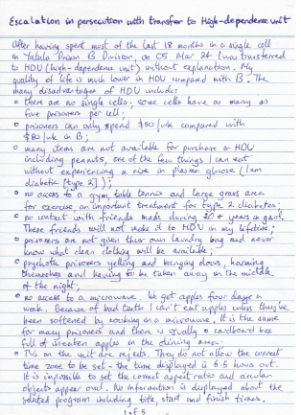 Escalation in persecution with transfer to High-dependence unit
After having spent most of the last 18 months in a single cell
in Yatala Prison B Division, on 05 Mar 24 I was transferred
to HDU (high-dependence unit) without explanation. My
quality of life is much lower in HDU compared with B. The
many disadvantages of HDU include:
• there are no single cells; some cells have as many as
five prisoners per cell;
• prisoners can only spend $50/wk compared with
$80/wk in B;
• many items are not available for purchase in HDU
including peanuts, one of the few things I can eat
without experiencing a rise in plasma glucose (I am
diabetic [type 2]);
• no access to a gym, table tennis and large grass area
for exercise an important treatment for type 2 diabetes;
• no contact with friends made during 20+ years in gaol.
These friends will not make it to HDU in my lifetime;
• prisoners are not given their own laundry bag and never
know what clean clothing will be available;
• psychotic prisoners yelling and banging doors, harming
themselves and having to be taken away in the middle
of the night;
• no access to a microwave. We get apples four days a
week. Because of bad teeth I can't eat apples unless they've
been softened by cooking in a microwave. It is the same
for many prisoners and there is usually a cardboard box
full of uneaten apples in the dining area.
• TVs in the unit are rejects. They do not allow the correct
time zone to be set - the time displayed is 6.5 hours out.
It is impossible to set the correct aspect ratio and circular
objects appear oval. No information is displayed about the
selected program including title, start and finish times.
1 of 5